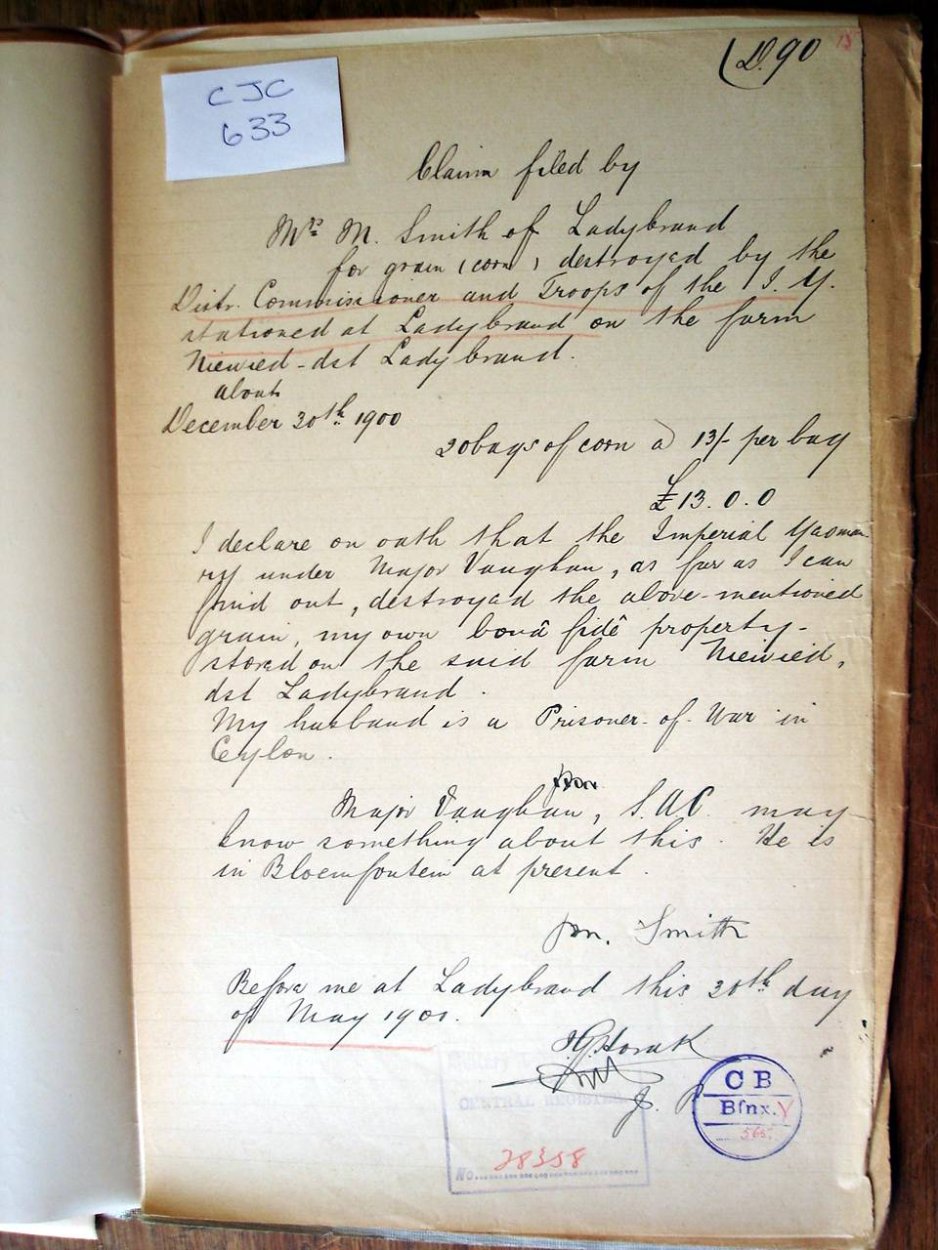 D.90
CJC
633
Claim filed by
Mrs M. Smith of Ladybrand
for grain (corn) destroyed by the
Distr. Commissioner and Troops of the I. Y.
stationed at Ladybrand on the farm
Niewied - dst Ladybrand.
about
December 30th 1900
20 bags of corn a) 13/- per bag
£13.0.0
I declare on oath that the Imperial Yaoman
ry under Major Vaughan, as far as I can
find out, destroyed the above-mentioned
grain, my own bonâ fidê property -
stored on the said farm Niewied,
dst Ladybrand.
My husband is a Prisoner-of-War in
Ceylon.
Major Vaughan, S.A.C. may
know something about this. He is
in Bloemfontein at present.
Smith
Before me at Ladybrand this 30th day
of May 1901.
Horak
J. P.
CENTRAL REGISTER
No. 28358
CB
Bfnx.
565